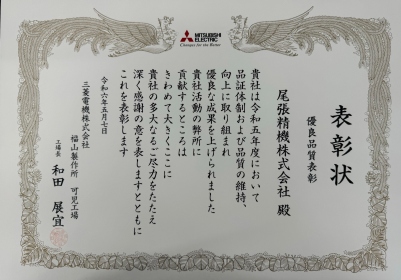 MITSUBISHI
ELECTRIC
Changes for the Better
表彰状
優良品質表彰
尾張精機株式会社 殿
貴社は令和五年度において
品証体制および品質の維持、
向上に取り組まれ
優良な成果を上げられました
貴社活動の弊所に
貢献するところは
きわめて大きくここに
貴社の多大なるご尽力をたたえ
深く感謝の意を表しますとともに
これを表彰します
令和六年五月七日
三菱電機株式会社
福山製作所 可児工場
工場長 和田 展宜